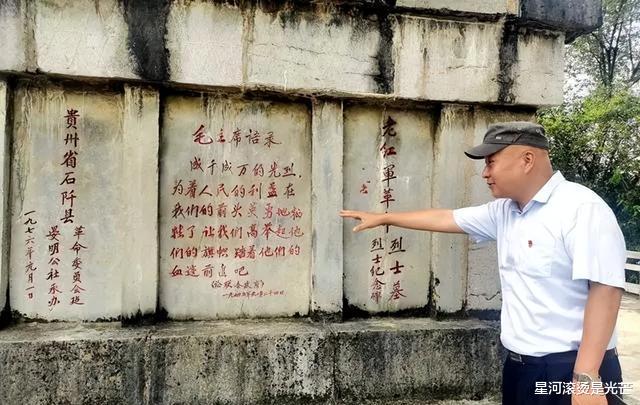 貴州省石阡县
革命委员会
明公社承办
一九七六年元月一日
毛主席语录
成千成万的先烈,
为着人民的利益在
我们的前头英勇地牺
牲了让我们高举起他
们的旗帜踏着他们的
血迹前进吧
《论联合政府》
一九四五年四月二十四日
老红軍革命烈士墓
烈士纪念碑
星河滚烫是光芒